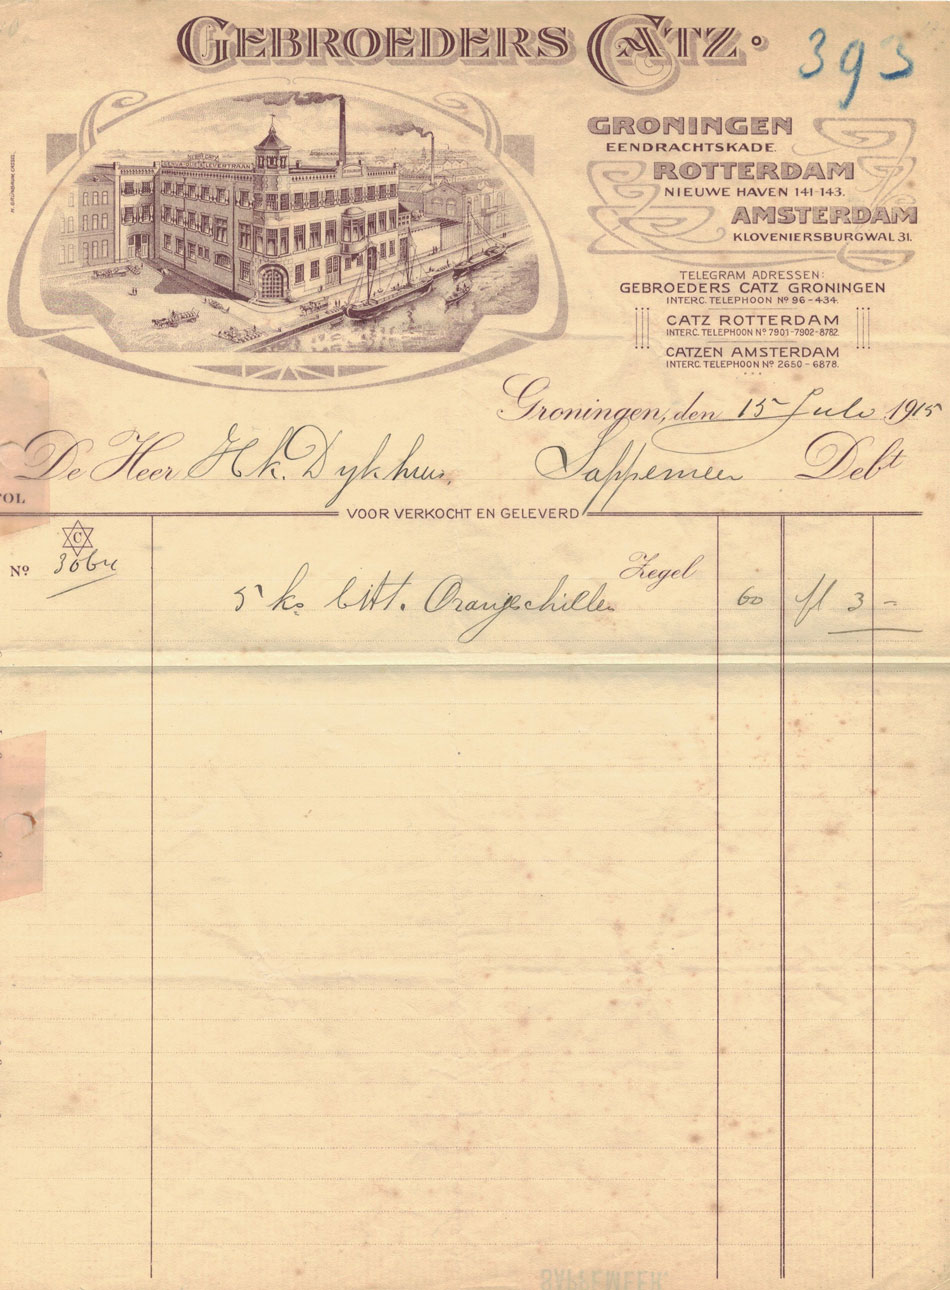 GEBROEDERS CATZ.
393
GRONINGEN
EENDRACHTSKADE.
ROTTERDAM
NIEUWE HAVEN 141-143.
AMSTERDAM
KLOVENIERSBURGWAL 31.
TELEGRAM ADRESSEN:
GEBROEDERS CATZ GRONINGEN
INTERC. TELEPHOON No 96-434.
CATZ ROTTERDAM
INTERC. TELEPHOON No 7901-7902-8782.
CATZEN AMSTERDAM
INTERC. TELEPHOON No 2650-6878.
Groningen, den 15 Juli 1915
De Heer Hk. Dykhuis, Sappemeer Debt
TOL
VOOR VERKOCHT EN GELEVERD
C
No
Zegel
5 ko bitt. Oranjeschillen 60 fl 3 -